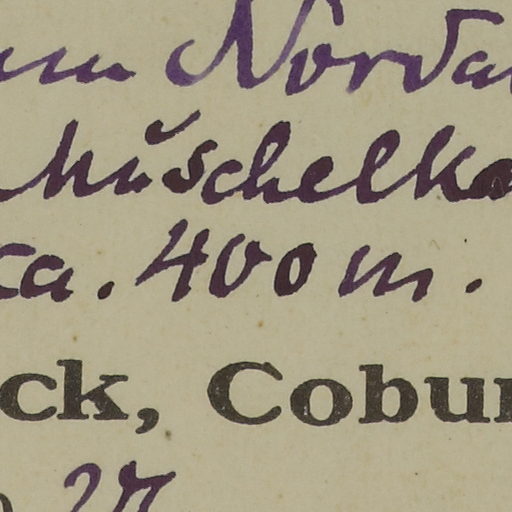 um Norda
Muschelka
ca. 400 m.
ck, Cobur